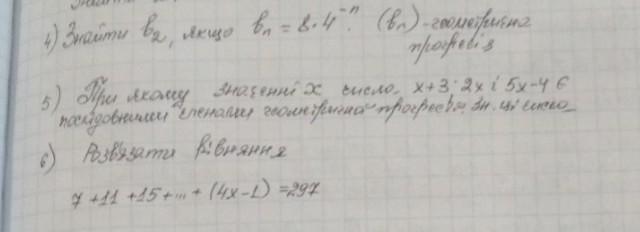 4) Знайти b₂, якщо bₙ = 8·4⁻ⁿ. (bₙ) - геометрична
прогресія
5) При якому значенні x число x+3; 2x і 5x-4 є
послідовними членами геометричної прогресії. Зн. ці числа
6) Розв'язати рівняння
7 + 11 + 15 + ... + (4x - 1) = 297